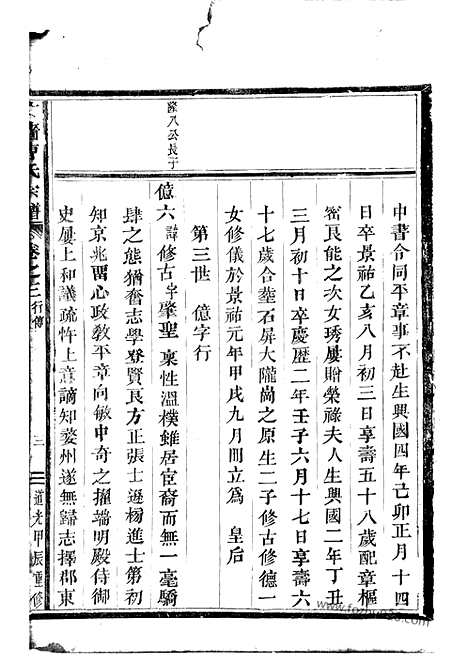 中書令同平章事不赴生興國四年己卯正月十四
日卒景祐乙亥八月初三日享壽五十八歲配章樞
密良能之次女琇屢贈榮祿夫人生興國二年丁丑
三月初十日卒慶歷二年壬子六月十七日享壽六
十七歲合塟石屏大隴崗之原生二子修古修德一
女修儀於景祐元年甲戌九月冊立爲 皇后
第三世 億字行
億六 諱修古字肇聖 稟性溫樸雖居宦裔而無一毫驕
肆之態猶奮志學登賢良方正張士遜楊進士第初
知京兆畱心政教平章向敏中奇之擢端明殿侍御
史屢上和議疏忤上意謫知婺州遂無歸志擇郡東
八公長子
氏宗譜
卷之二 行傳
三
道光甲辰重修